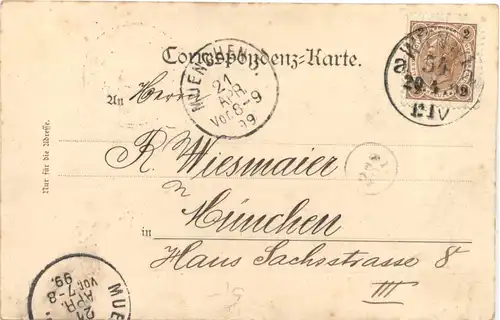 Correspondenz-Karte.
2
2
WIEN
54
20.4
IV
MUENCHEN
21
APR.
Vor. 8-9
99
An Herrn
R. Wiesmaier
München
in
Hans Sachsstrasse 8
III
Nur für die Adresse.
MUE
21
APR.
Vor. 7-8
99.